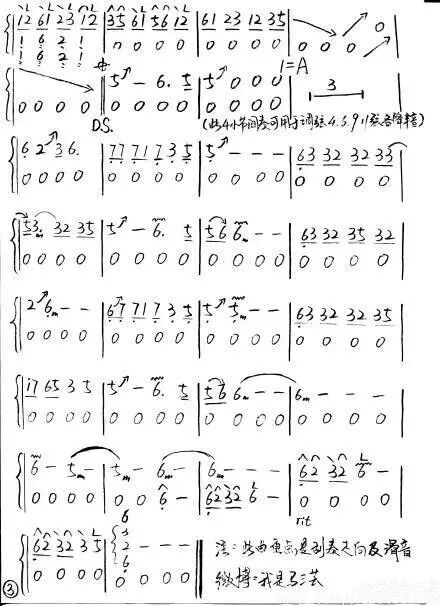 12 61 23 12 | 35 61 56 12 | 61 23 12 35 |
1 6 2 1 | 0 0 0 0 | 0 0 0 0 | 0 0 0
1 6 2 1
1=A
0 0 0 0 | 5 - 6. 5 | 5 0 0 0 | 3
0 0 0 0 | 0 0 0 0 | 0 0 0 0
D.S.
6 2 3 6. | 77 71 7 3 5 | 5 - - - | 63 32 32 33
0 0 0 0 | 0 0 0 0 | 0 0 0 0 | 0 0 0 0
53 32 35 | 5 - 6. 5 | 56 6m - - | 63 32 35 32
0 0 0 0 | 0 0 0 0 | 0 0 0 0 | 0 0 0 0
2 6m - - | 67 71 7 3 5 | 5 5m - - | 63 32 32 35
0 0 0 0 | 0 0 0 0 | 0 0 0 0 | 0 0 0 0
17 65 3 5 | 5 - 6. 5 | 56 6m - - | 6m - - -
0 0 0 0 | 0 0 0 0 | 0 0 0 0 | 0 0 0 0
6 - 5m - | 5m - 6m - | 6m - - - | 62 32 6 -
0 0 0 0 | 0 0 6 - | 62 32 6 - | 0 0 0 0
rit
62 32 3 5 | 6 3 2 6 - - -
0 0 0 0 | 0 0 0 0
注：此曲重点是刮奏走向及滑音
微博：我是
③